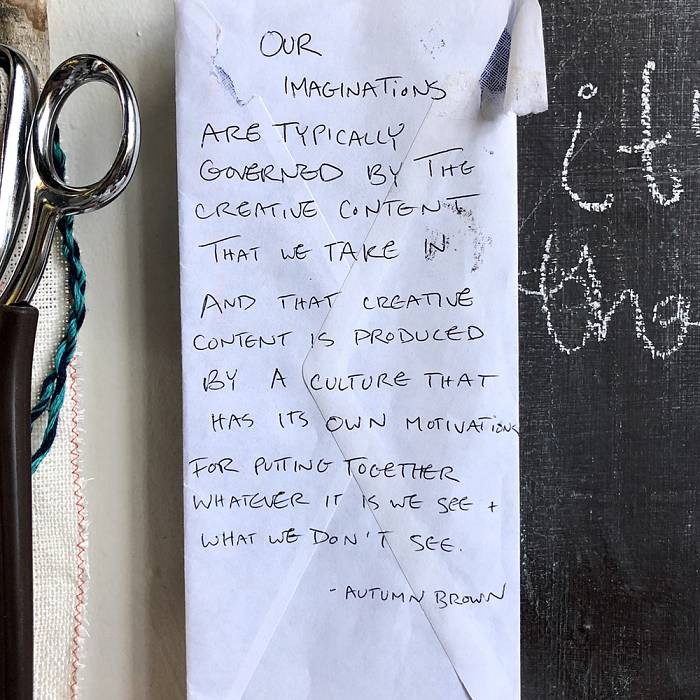 OUR
IMAGINATIONS
ARE TYPICALLY
GOVERNED BY THE
CREATIVE CONTENT
THAT WE TAKE IN.
AND THAT CREATIVE
CONTENT IS PRODUCED
BY A CULTURE THAT
HAS ITS OWN MOTIVATIONS
FOR PUTTING TOGETHER
WHATEVER IT IS WE SEE +
WHAT WE DON'T SEE.
- AUTUMN BROWN
it